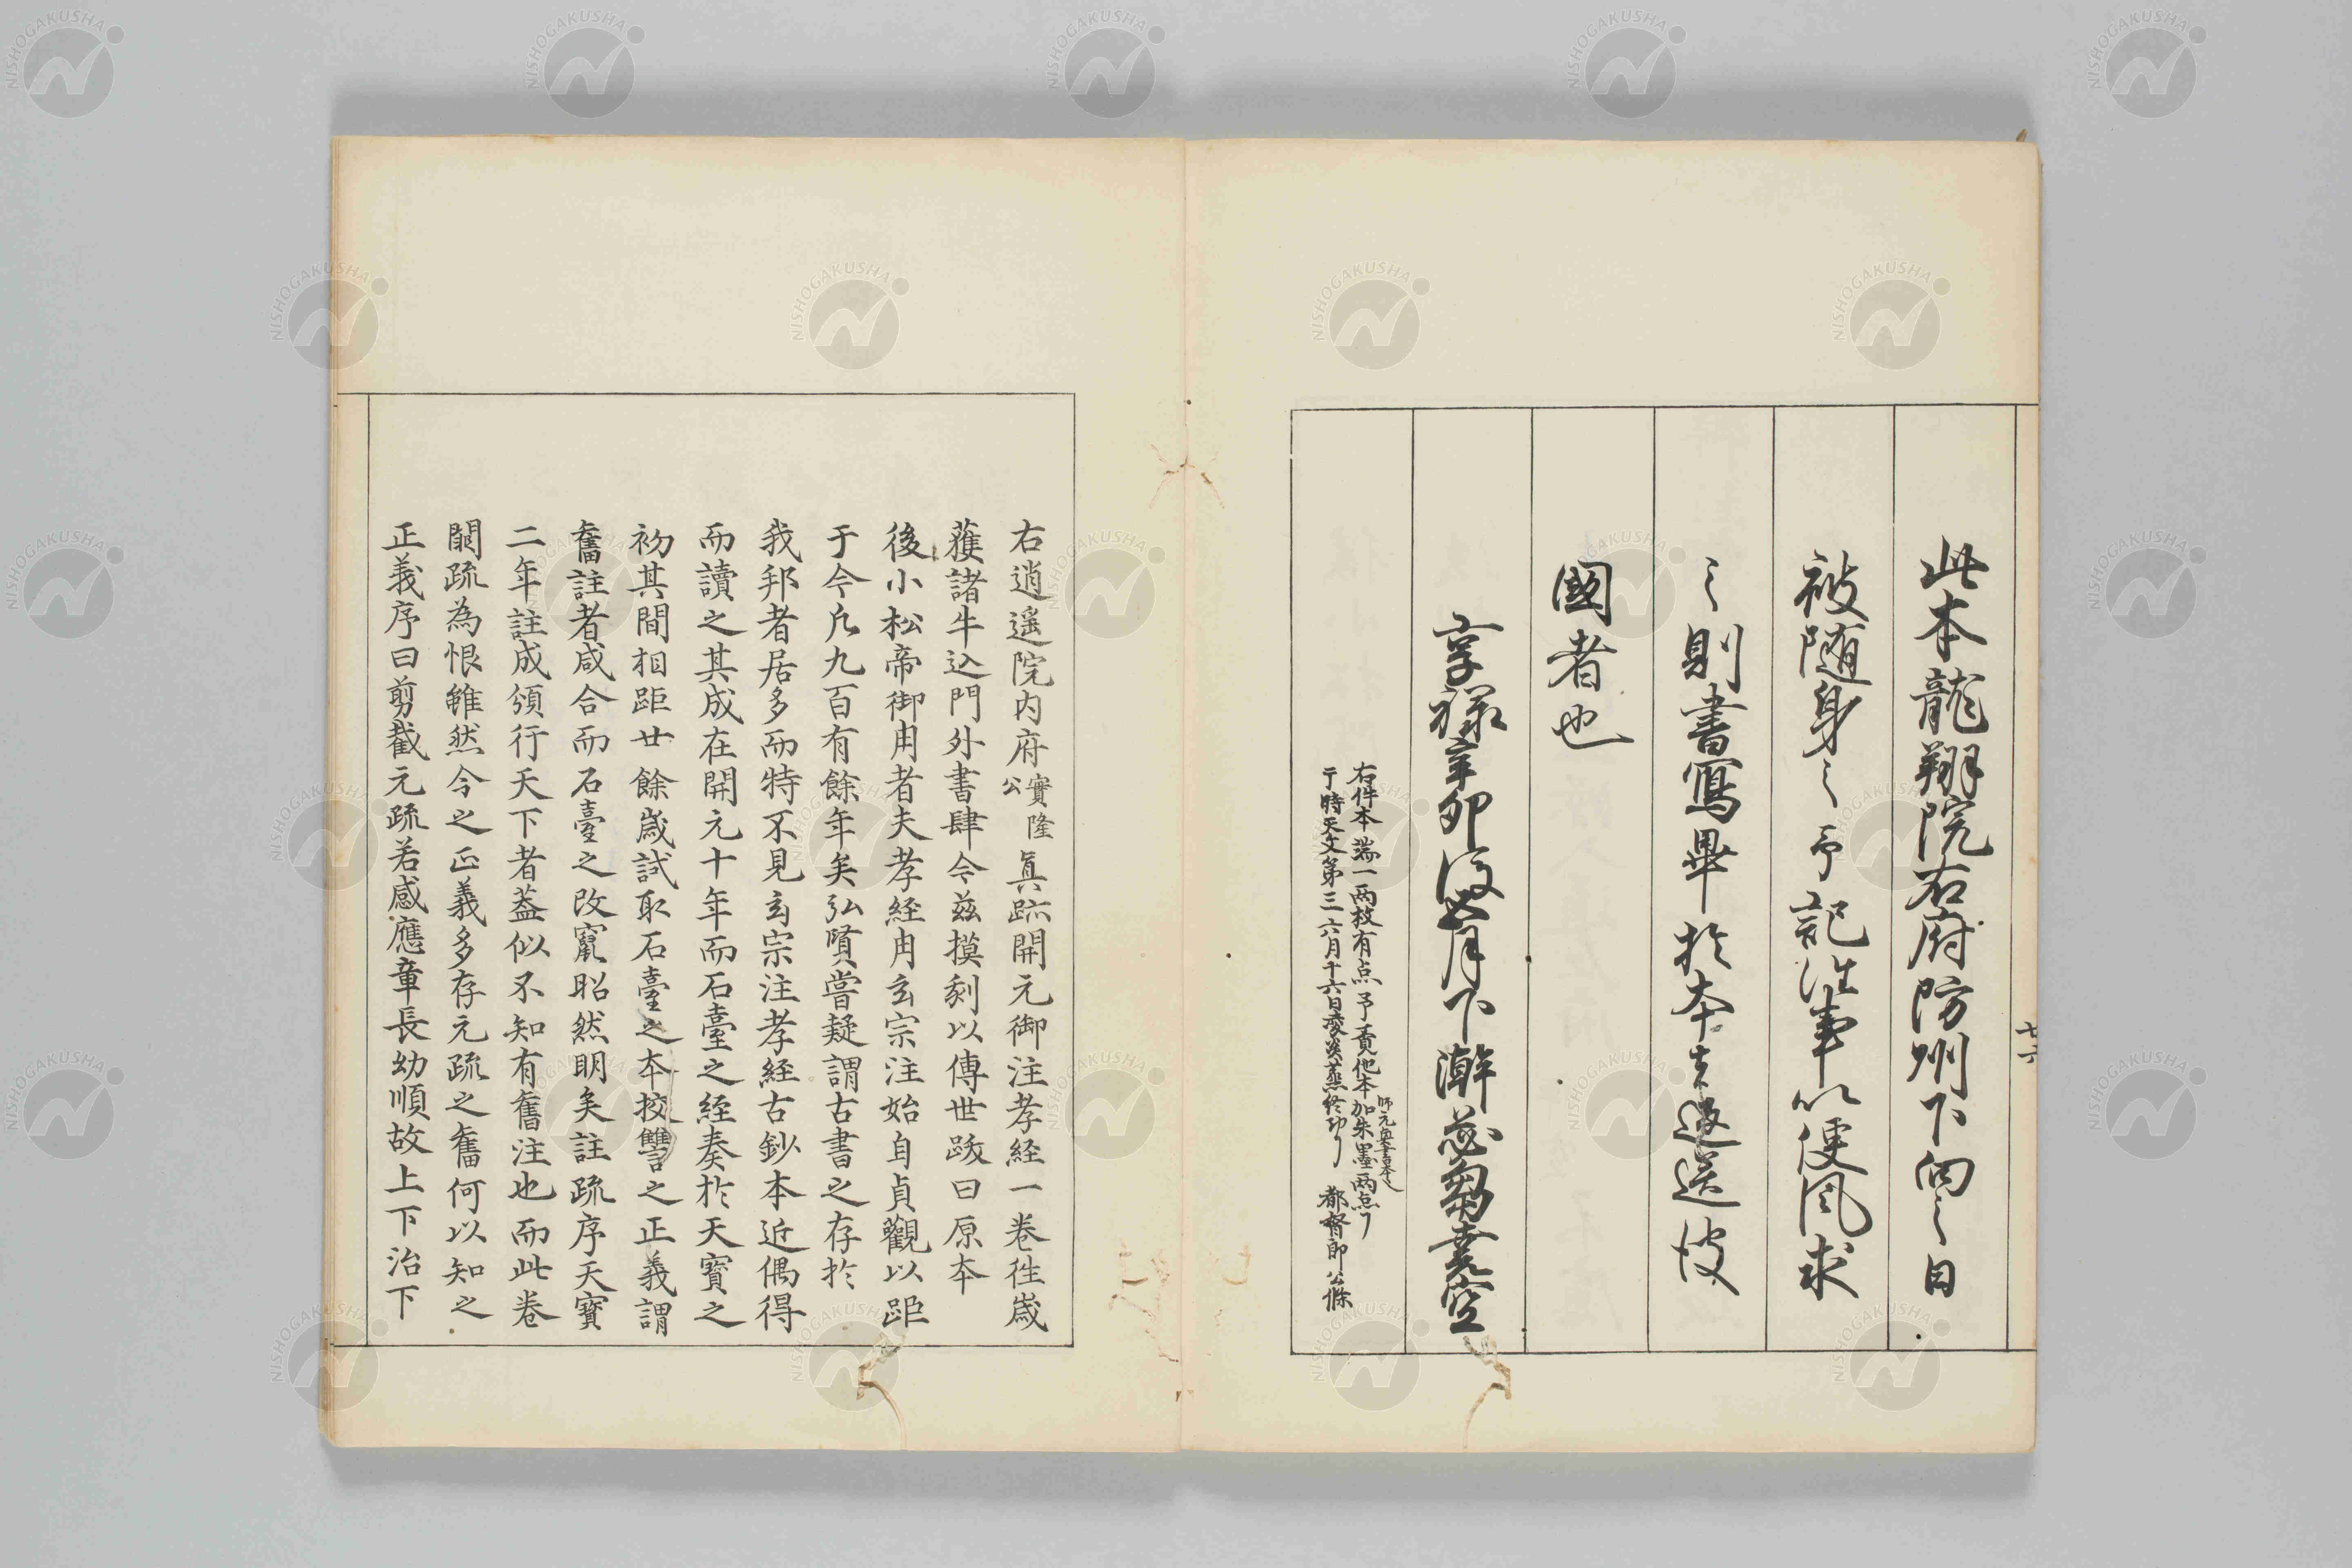 此本龍翔院右府防州下向之日
被随身之予記注事以便風求
之則書寫畢於本者返送彼
國者也
享禄辛卯後五月下澣苾蒭堯空
右件本端一両枚有点予責他本加朱墨両点了
師元奥書本也
于時天文第三六月十六日凌炎蒸終功了 都督郎公條
七十六
右逍遥院内府實隆公真跡開元御注孝経一巻徃歳
獲諸牛込門外書肆今兹摸刻以傳世跋曰原本
後小松帝御用者夫孝経用玄宗注始自貞觀以距
于今凡九百有餘年矣弘賢嘗疑謂古書之存於
我邦者居多而特不見玄宗注孝経古鈔本近偶得
而讀之其成在開元十年而石臺之経奏於天寳之
初其間相距廿餘歳試取石臺之本挍讐之正義謂
舊註者咸合而石臺之改竄昭然明矣註疏序天寳
二年註成頒行天下者蓋似不知有舊注也而此巻
闕疏為恨雖然今之正義多存元疏之舊何以知之
正義序曰剪截元疏若感應章長幼順故上下治下
NISHOGAKUSHA